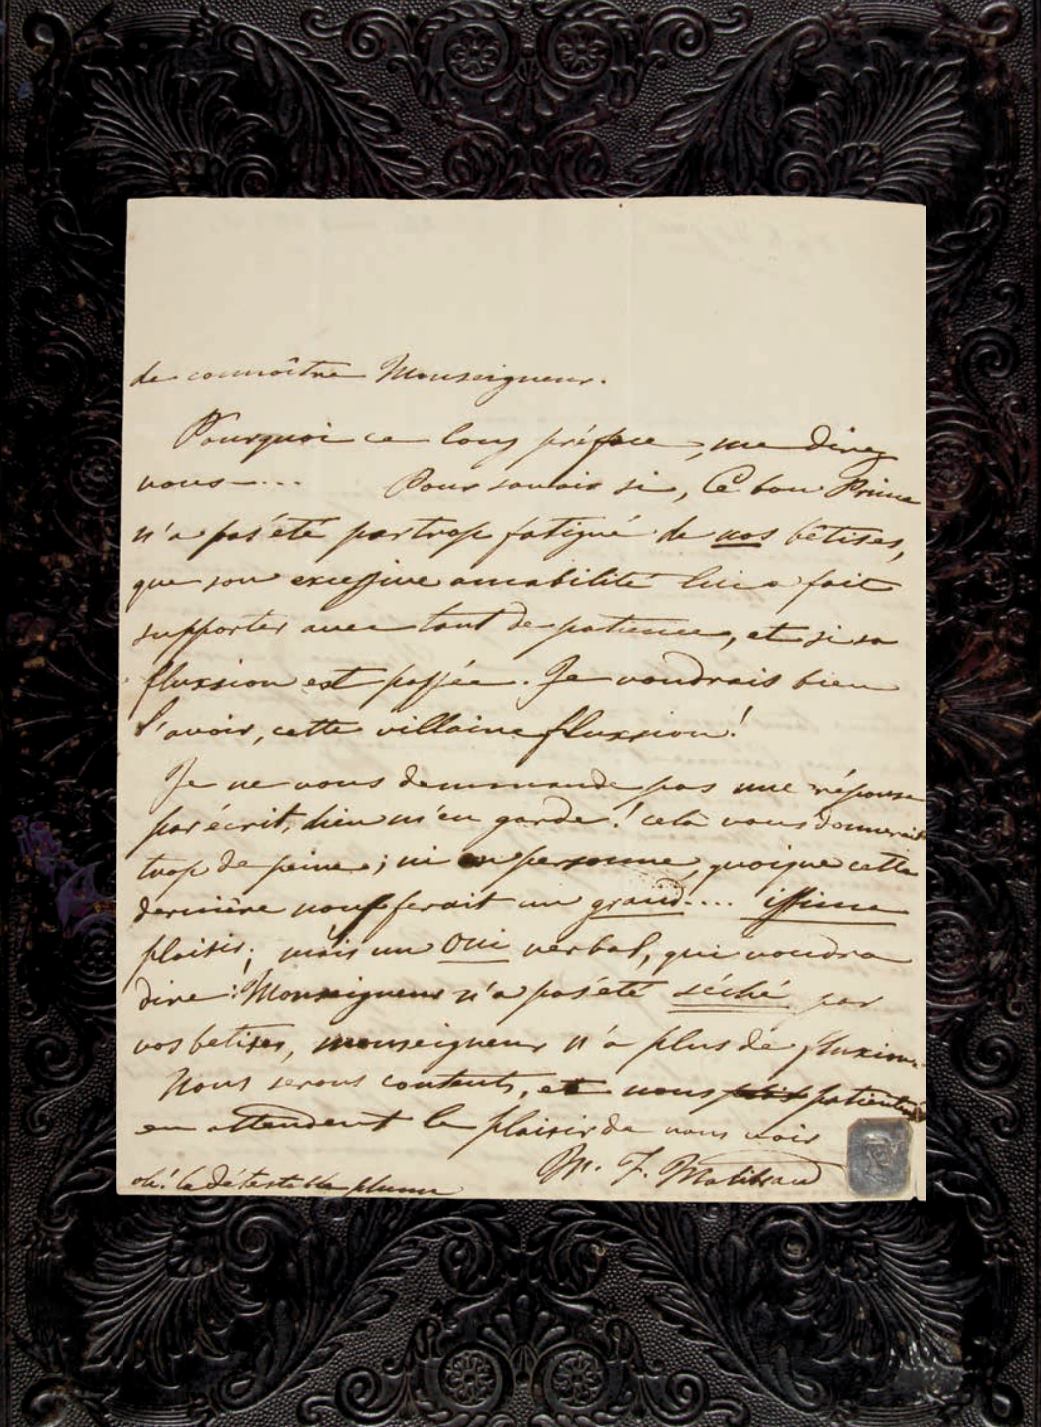 de connoître Monseigneur.
Pourquoi ce long préface, me direz
vous—... Pour savoir si, Ce bon Prince
n'a pas été par trop fatigué de nos bêtises,
que son excessive amabilité lui a fait
supporter avec tant de patience, et si sa
fluxsion est passée. Je voudrais bien
l'avoir, cette villaine fluxsion!
Je ne vous demmande pas une réponse
par écrit, dieu m'en garde! celà vous donnerait
trop de peine; ni en personne, quoique cette
dernière nous ferait un grand.... issime
plaisir; mais un oui verbal, qui voudra
dire: Monseigneur n'a pas été séché par
vos betises, monseigneur n'a plus de fluxion.
Nous serons contents, et nous patienterons
en attendent le plaisir de vous voir
M. F. Malibran
oh! la détestable plume